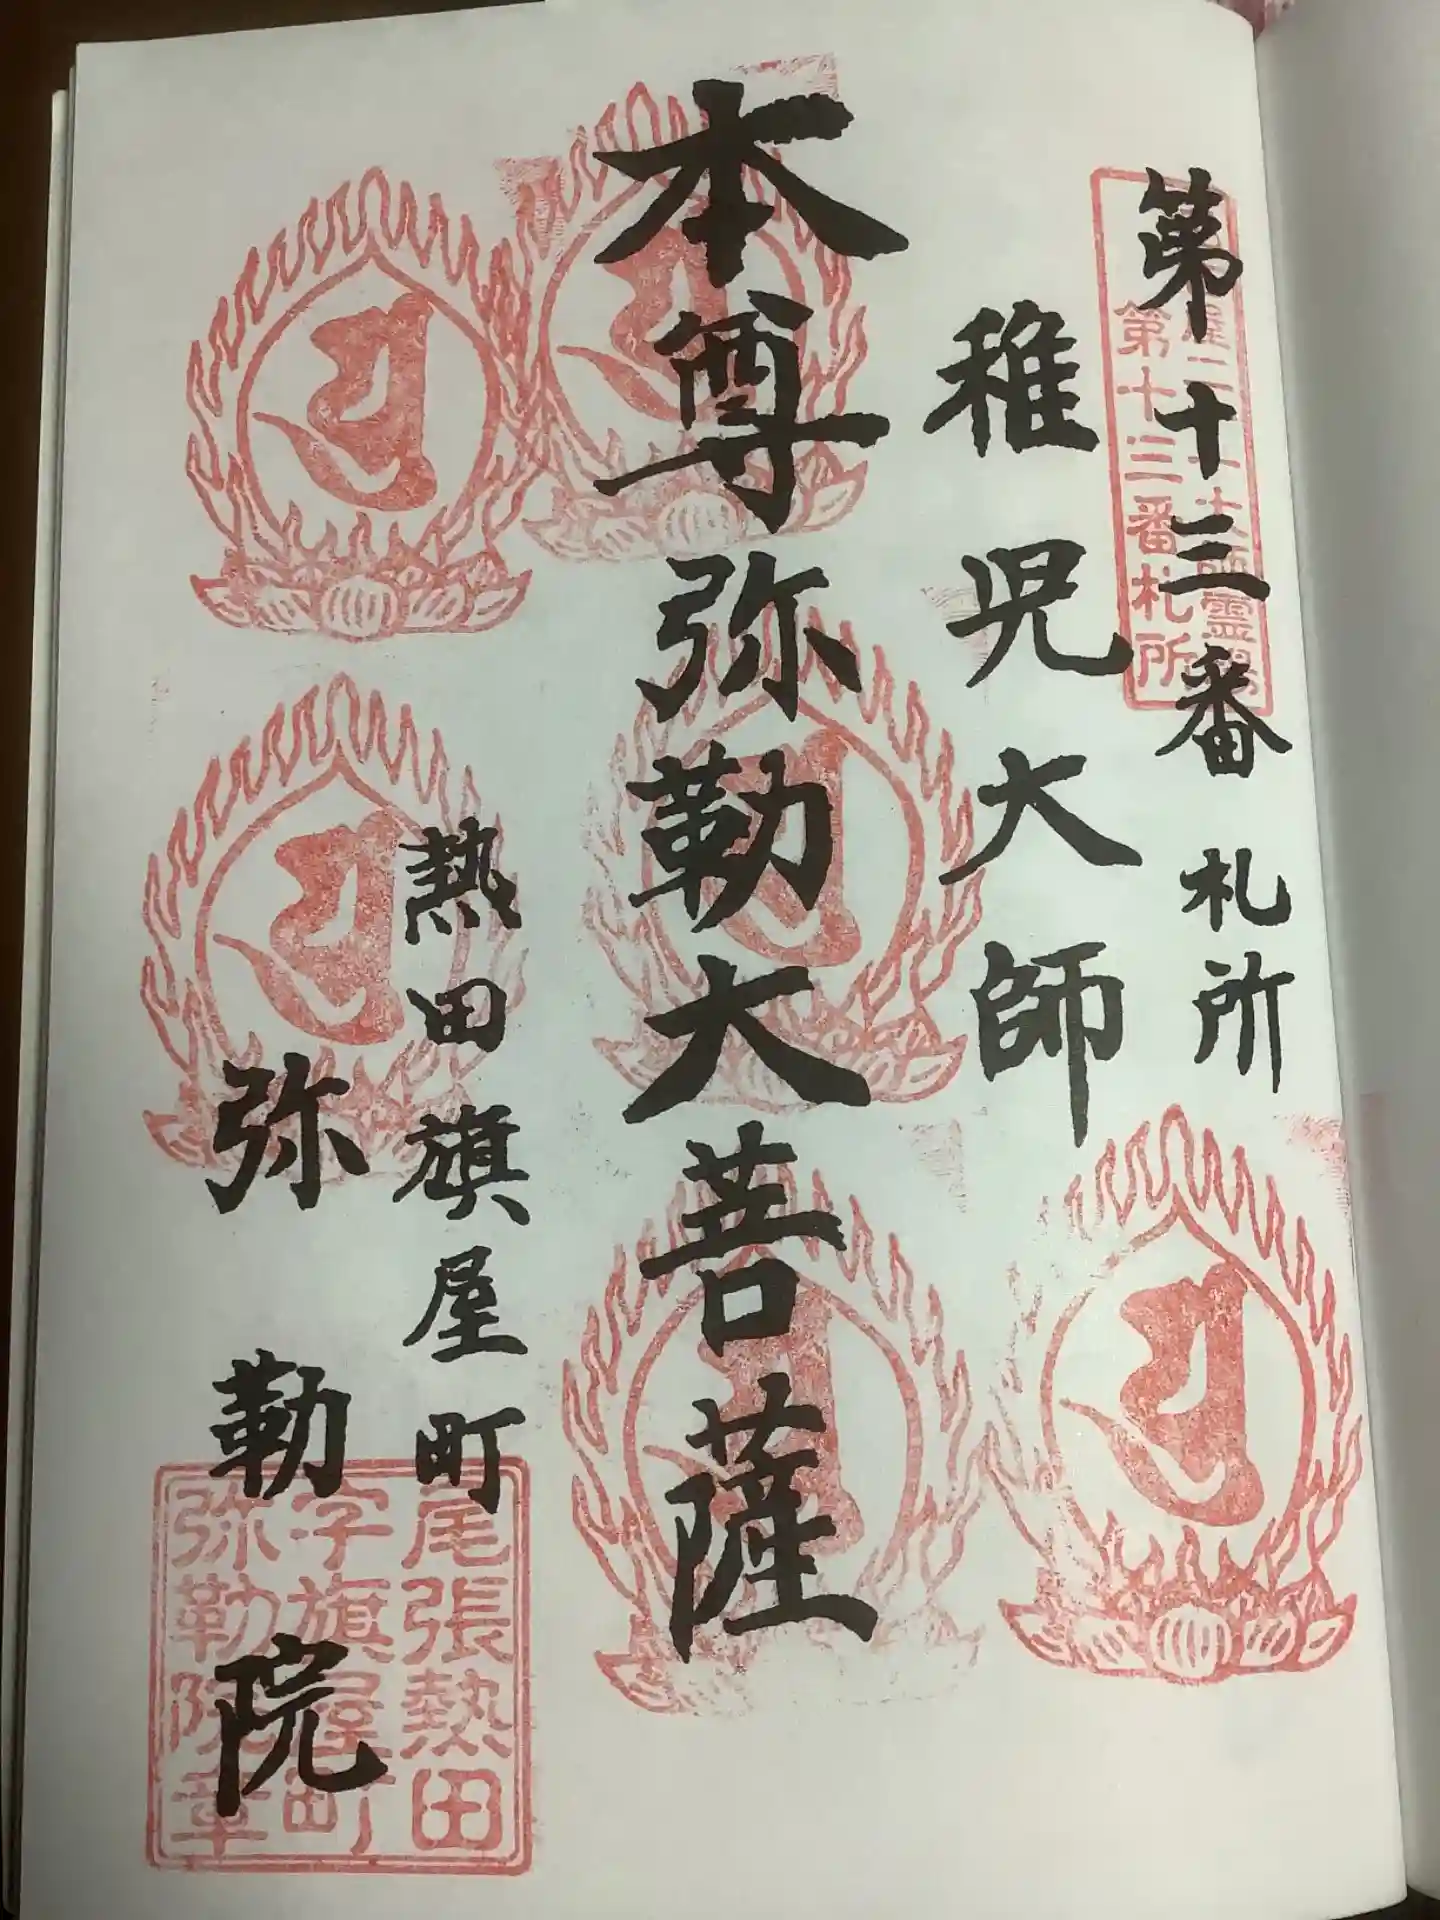 第十三番 札所
第十三番札所
稚児大師
本尊弥勒大菩薩
熱田旗屋町
弥勒院
尾張熱田
字旗屋町
弥勒院章